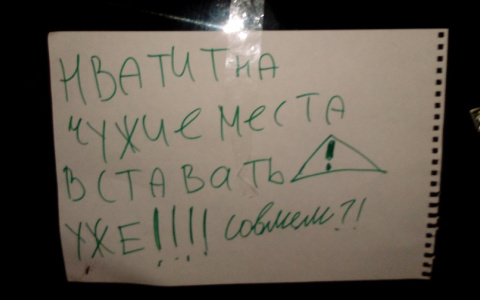 ХВАТИТ НА
ЧУЖИЕ МЕСТА
ВСТАВАТЬ !
УЖЕ!!!! совмем?!